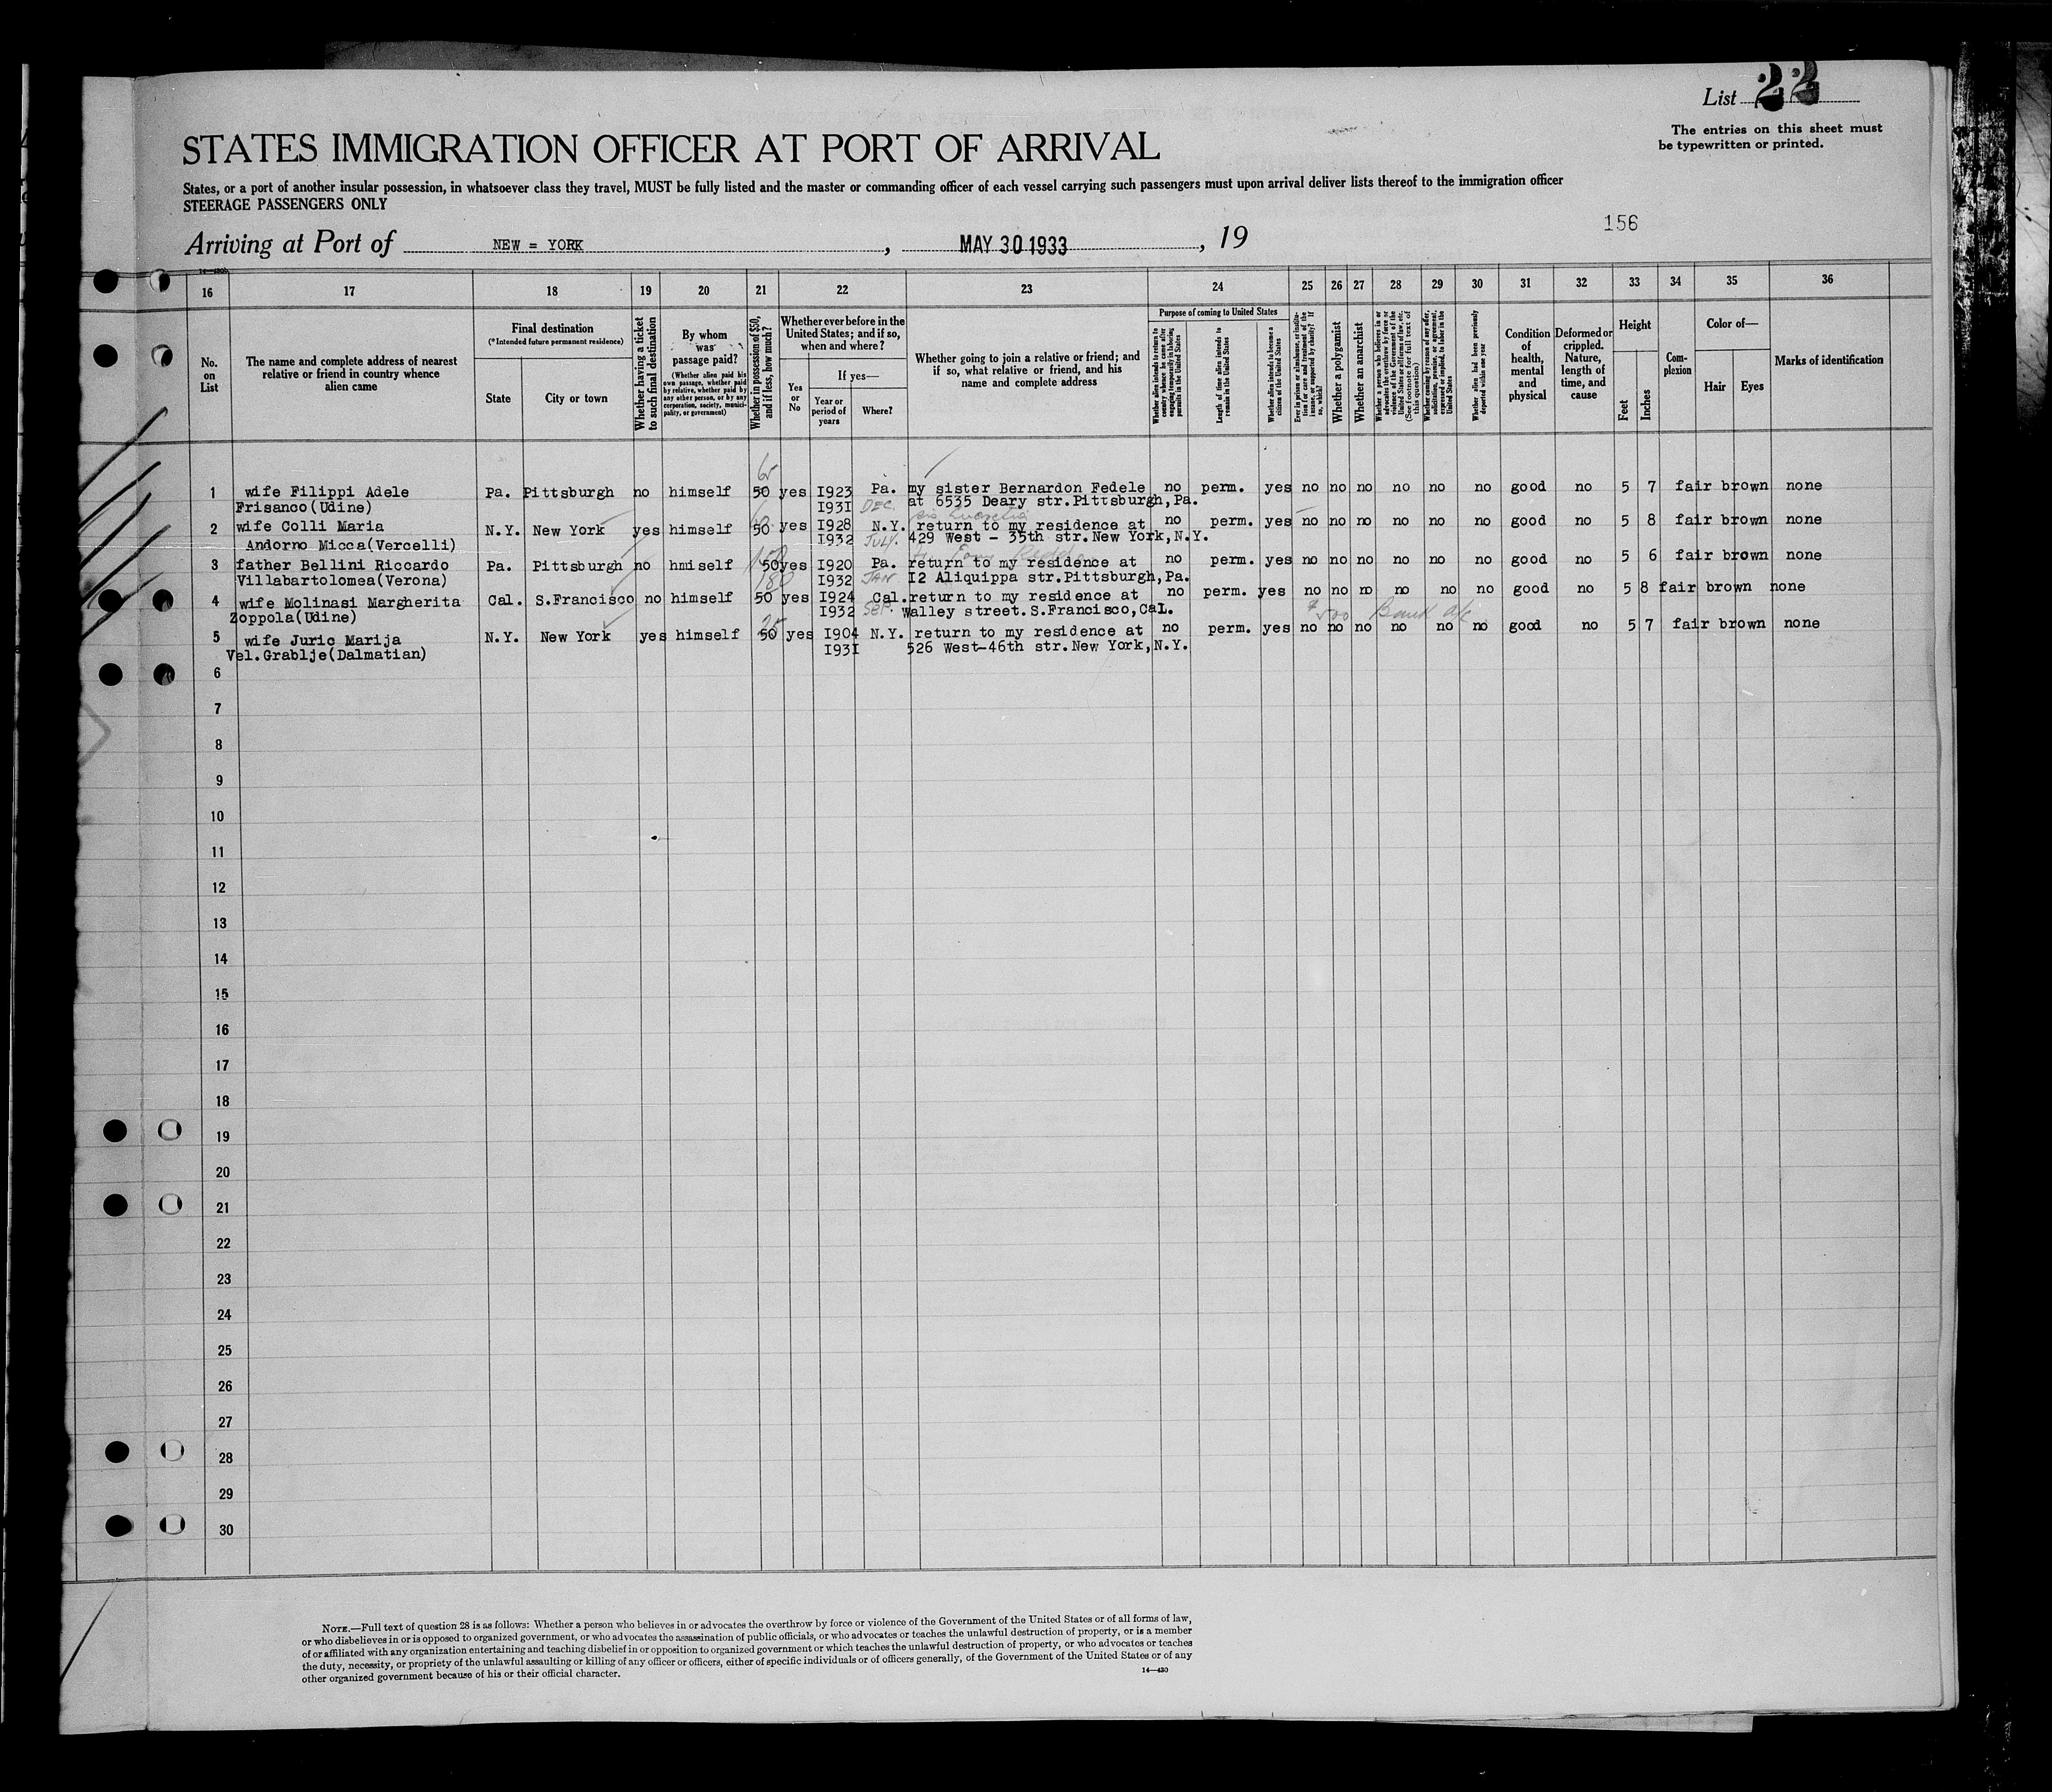 List 22
The entries on this sheet must
be typewritten or printed.
STATES IMMIGRATION OFFICER AT PORT OF ARRIVAL
States, or a port of another insular possession, in whatsoever class they travel, MUST be fully listed and the master or commanding officer of each vessel carrying such passengers must upon arrival deliver lists thereof to the immigration officer
STEERAGE PASSENGERS ONLY
156
Arriving at Port of NEW = YORK , MAY 30 1933 , 19
16 17 18 19 20 21 22 23 24 25 26 27 28 29 30 31 32 33 34 35 36
No.
on
List
The name and complete address of nearest
relative or friend in country whence
alien came
Final destination
(*Intended future permanent residence)
State
City or town
Whether having a ticket
to such final destination
By whom
was
passage paid?
(Whether alien paid his
own passage, whether paid
by relative, whether paid by
any other person, or by any
corporation, society, munici-
pality, or government)
Whether in possession of $50,
and if less, how much?
Whether ever before in the
United States; and if so,
when and where?
Yes
or
No
If yes—
Year or
period of
years
Where?
Whether going to join a relative or friend; and
if so, what relative or friend, and his
name and complete address
Purpose of coming to United States
Whether alien intends to return to
country whence he came after
engaging temporarily in laboring
pursuits in the United States
Length of time alien intends to
remain in the United States
Whether alien intends to become a
citizen of the United States
Ever in prison or almshouse, or institu-
tion for care and treatment of the
insane, or supported by charity? If
so, which?
Whether a polygamist
Whether an anarchist
Whether a person who believes in or
advocates the overthrow by force or
violence of the Government of the
United States or all forms of law, etc.
(See footnote for full text of
this question)
Whether coming by reason of any offer,
solicitation, promise, or agreement,
expressed or implied, to labor in the
United States
Whether alien had been previously
deported within one year
Condition
of
health,
mental
and
physical
Deformed or
crippled.
Nature,
length of
time, and
cause
Height
Feet
Inches
Com-
plexion
Color of—
Hair
Eyes
Marks of identification
65
1 wife Filippi Adele Pa. Pittsburgh no himself 50 yes I923 Pa. my sister Bernardon Fedele no perm. yes no no no no no no good no 5 7 fair brown none
Frisanco(Udine) I93I DEC. at 6535 Deary str.Pittsburgh,Pa.
2 wife Colli Maria N.Y. New York yes himself 50 yes I928 N.Y. return to my residence at no perm. yes no no no no no no good no 5 8 fair brown none
Andorno Micca(Vercelli) I932 JULY. 429 West - 35th str.New York,N.Y.
150
3 father Bellini Riccardo Pa. Pittsburgh no hmiself 50 yes I920 Pa. return to my residence at no perm. yes no no no no no no good no 5 6 fair brown none
Villabartolomea(Verona) 180 I932 JAN I2 Aliquippa str.Pittsburgh,Pa.
4 wife Molinasi Margherita Cal. S.Francisco no himself 50 yes I924 Cal.return to my residence at no perm. yes no no no no no no good no 5 8 fair brown none
Zoppola(Udine) I932 SEP. Walley street.S.Francisco,Cal. $500 Bank a/c
25
5 wife Juric Marija N.Y. New York yes himself 50 yes I904 N.Y. return to my residence at no perm. yes no no no no no no good no 5 7 fair brown none
Vel.Grablje(Dalmatian) I93I 526 West-46th str.New York,N.Y.
6
7
8
9
10
11
12
13
14
15
16
17
18
19
20
21
22
23
24
25
26
27
28
29
30
NOTE.—Full text of question 28 is as follows: Whether a person who believes in or advocates the overthrow by force or violence of the Government of the United States or of all forms of law,
or who disbelieves in or is opposed to organized government, or who advocates the assassination of public officials, or who advocates or teaches the unlawful destruction of property, or is a member
of or affiliated with any organization entertaining and teaching disbelief in or opposition to organized government or which teaches the unlawful destruction of property, or who advocates or teaches
the duty, necessity, or propriety of the unlawful assaulting or killing of any officer or officers, either of specific individuals or of officers generally, of the Government of the United States or of any
other organized government because of his or their official character.
14—430